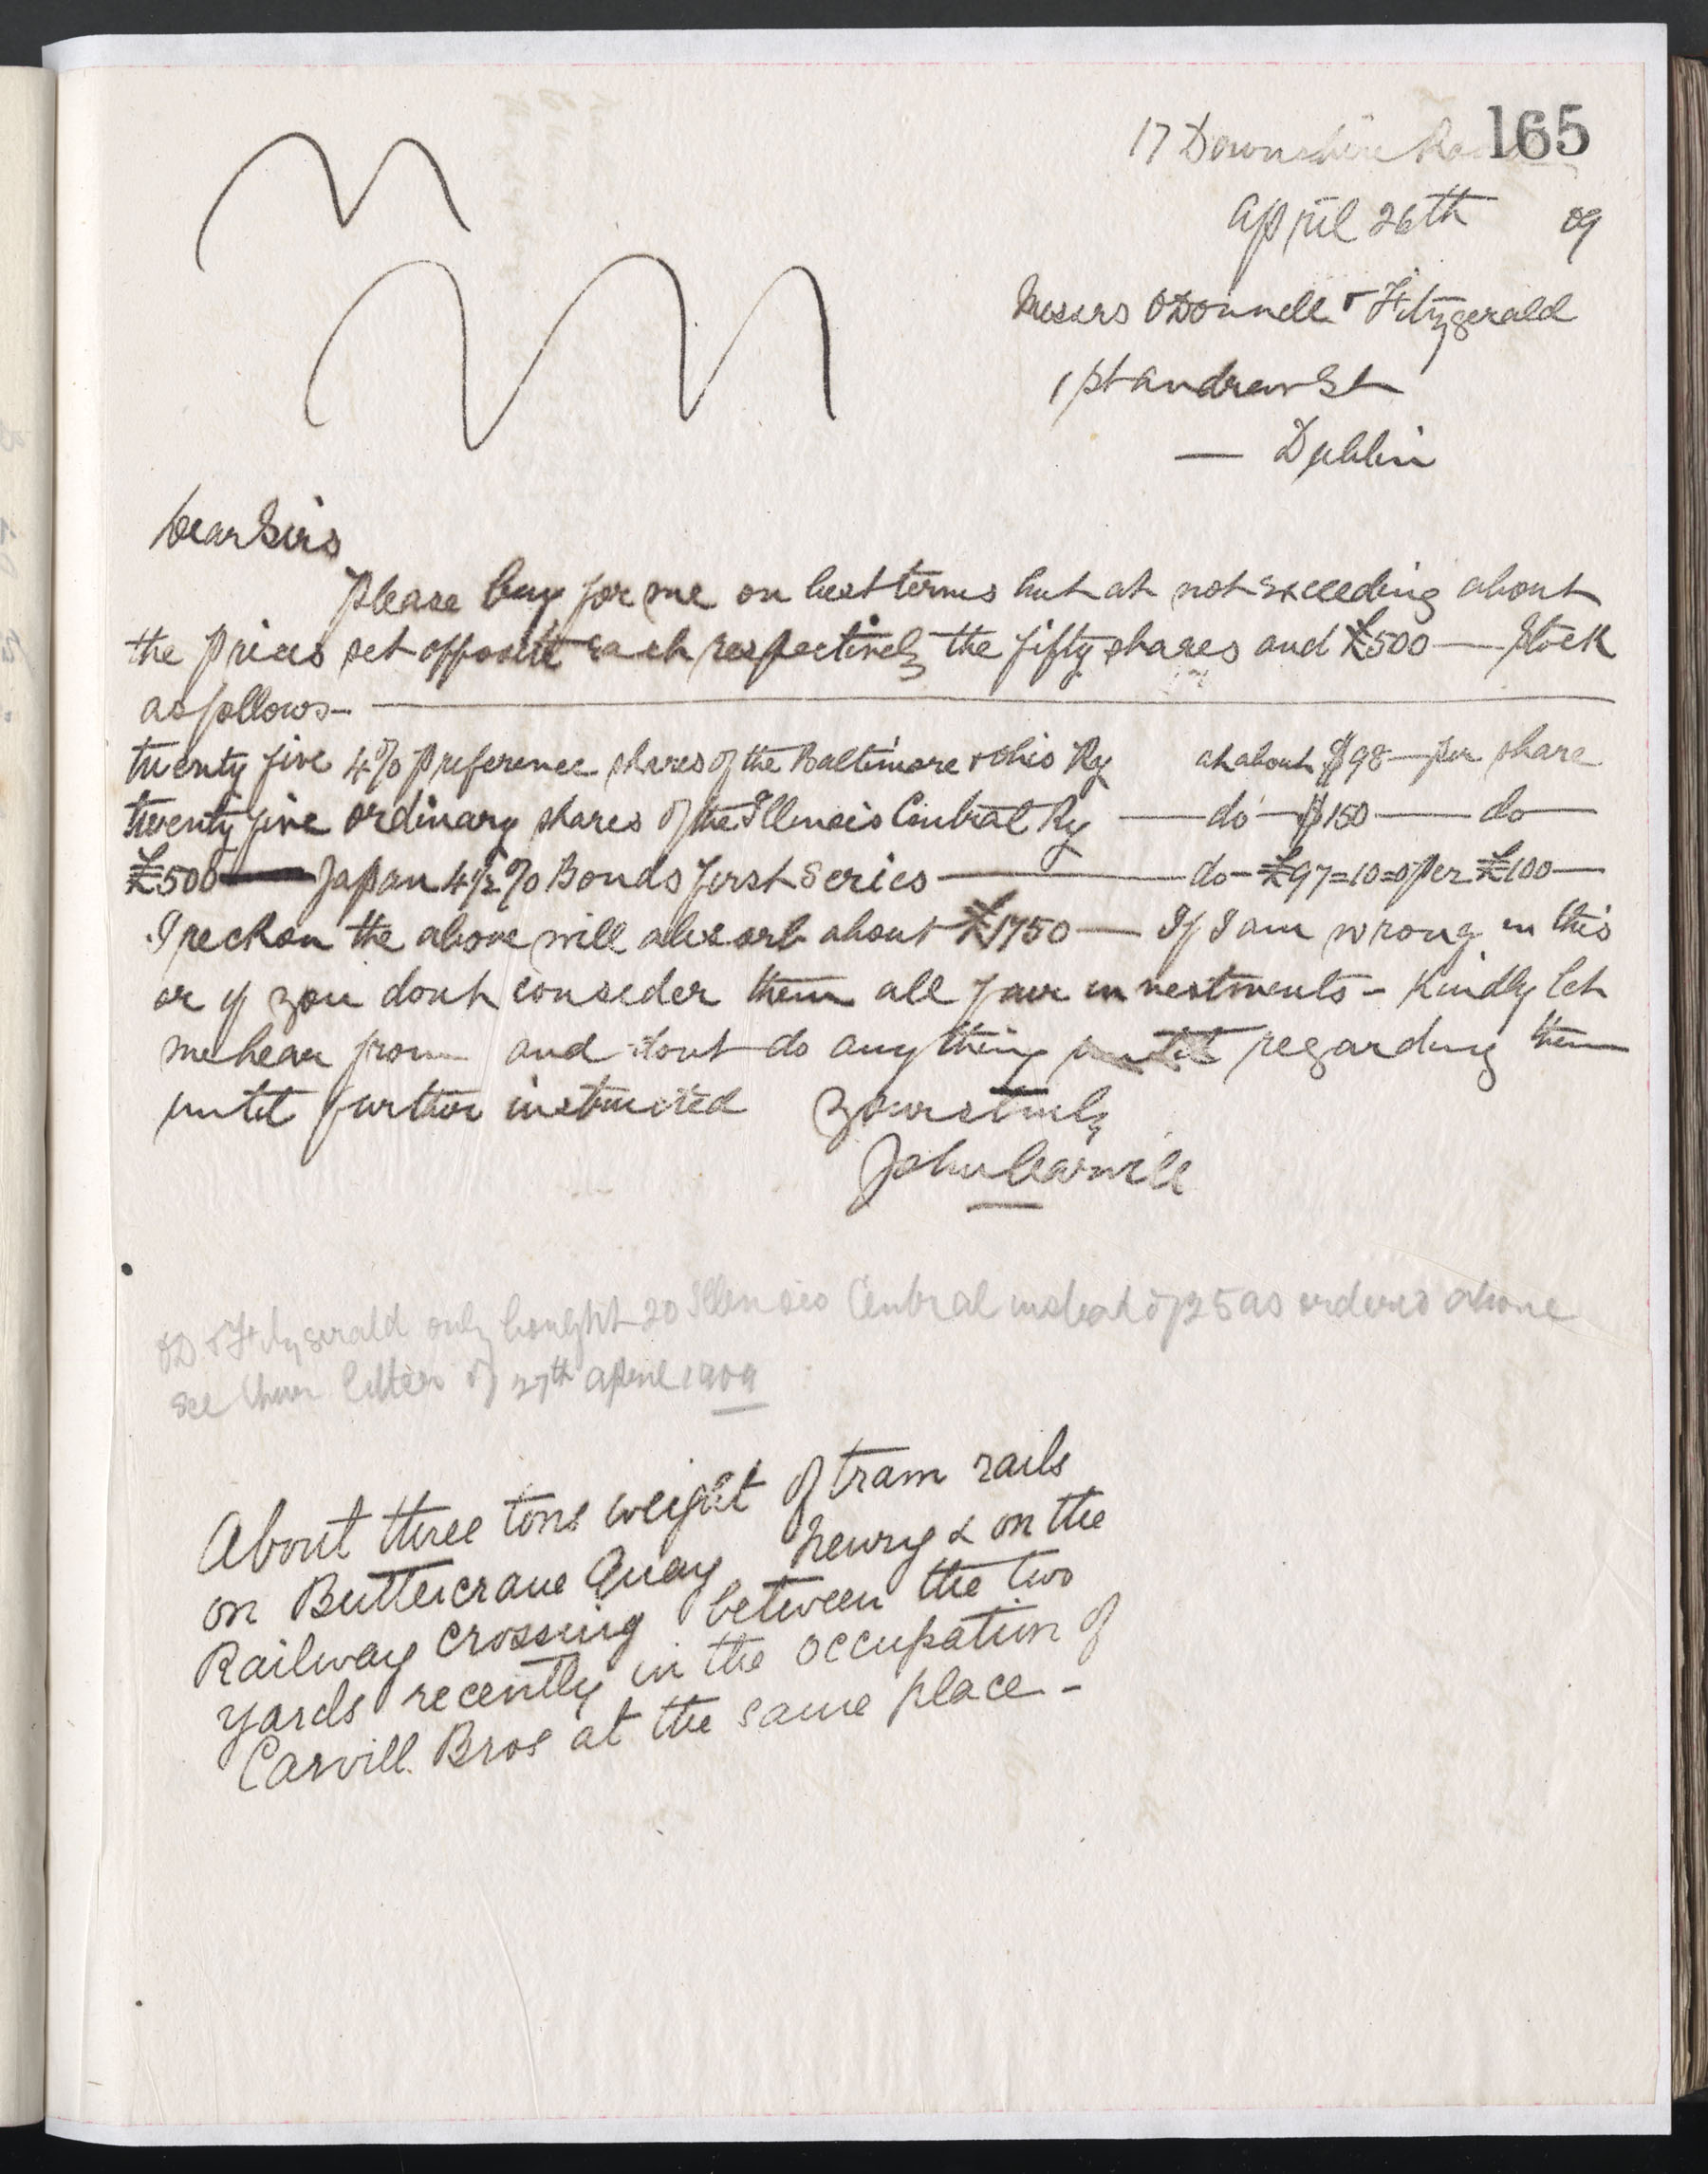 165
17 Downshire Road
April 26th 09
Messrs O'Donnell & Fitzgerald
1 St Andrew St
— Dublin
Dear Sirs
Please buy for me on best terms but at not exceeding about
the prices set opposite each respectively the fifty shares and £500 — Stock
as follows —
twenty five 4% preference shares of the Baltimore & Ohio Ry at about $98 — per share
twenty five ordinary shares of the Illinois Central Ry — do — $150 — do —
£500 — Japan 4½% Bonds first Series — do — £97=10=0 per £100 —
I reckon the above will absorb about £1750 — If I am wrong in this
or if you dont conseder them all fair investments - Kindly let
me hear from and dont do anything until regarding them
until further instructed Yours truly
John Carvill
OD & Fitzgerald only bought 20 Illinois Central instead of 25 as ordered above
see their letter of 27th April 1909
About three tons weight of tram rails
on Buttercrane Quay Newry & on the
Railway crossing between the two
yards recently in the occupation of
Carvill Bros at the same place -